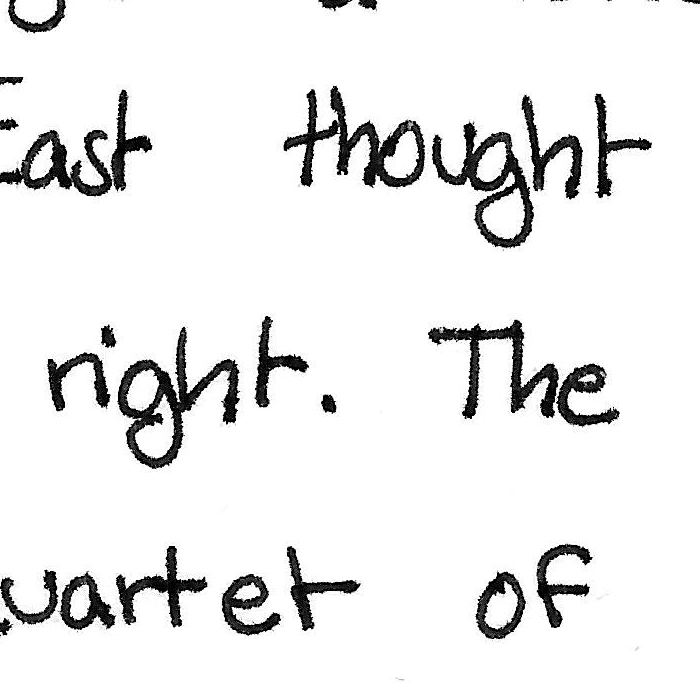 East thought
right. The
uartet of